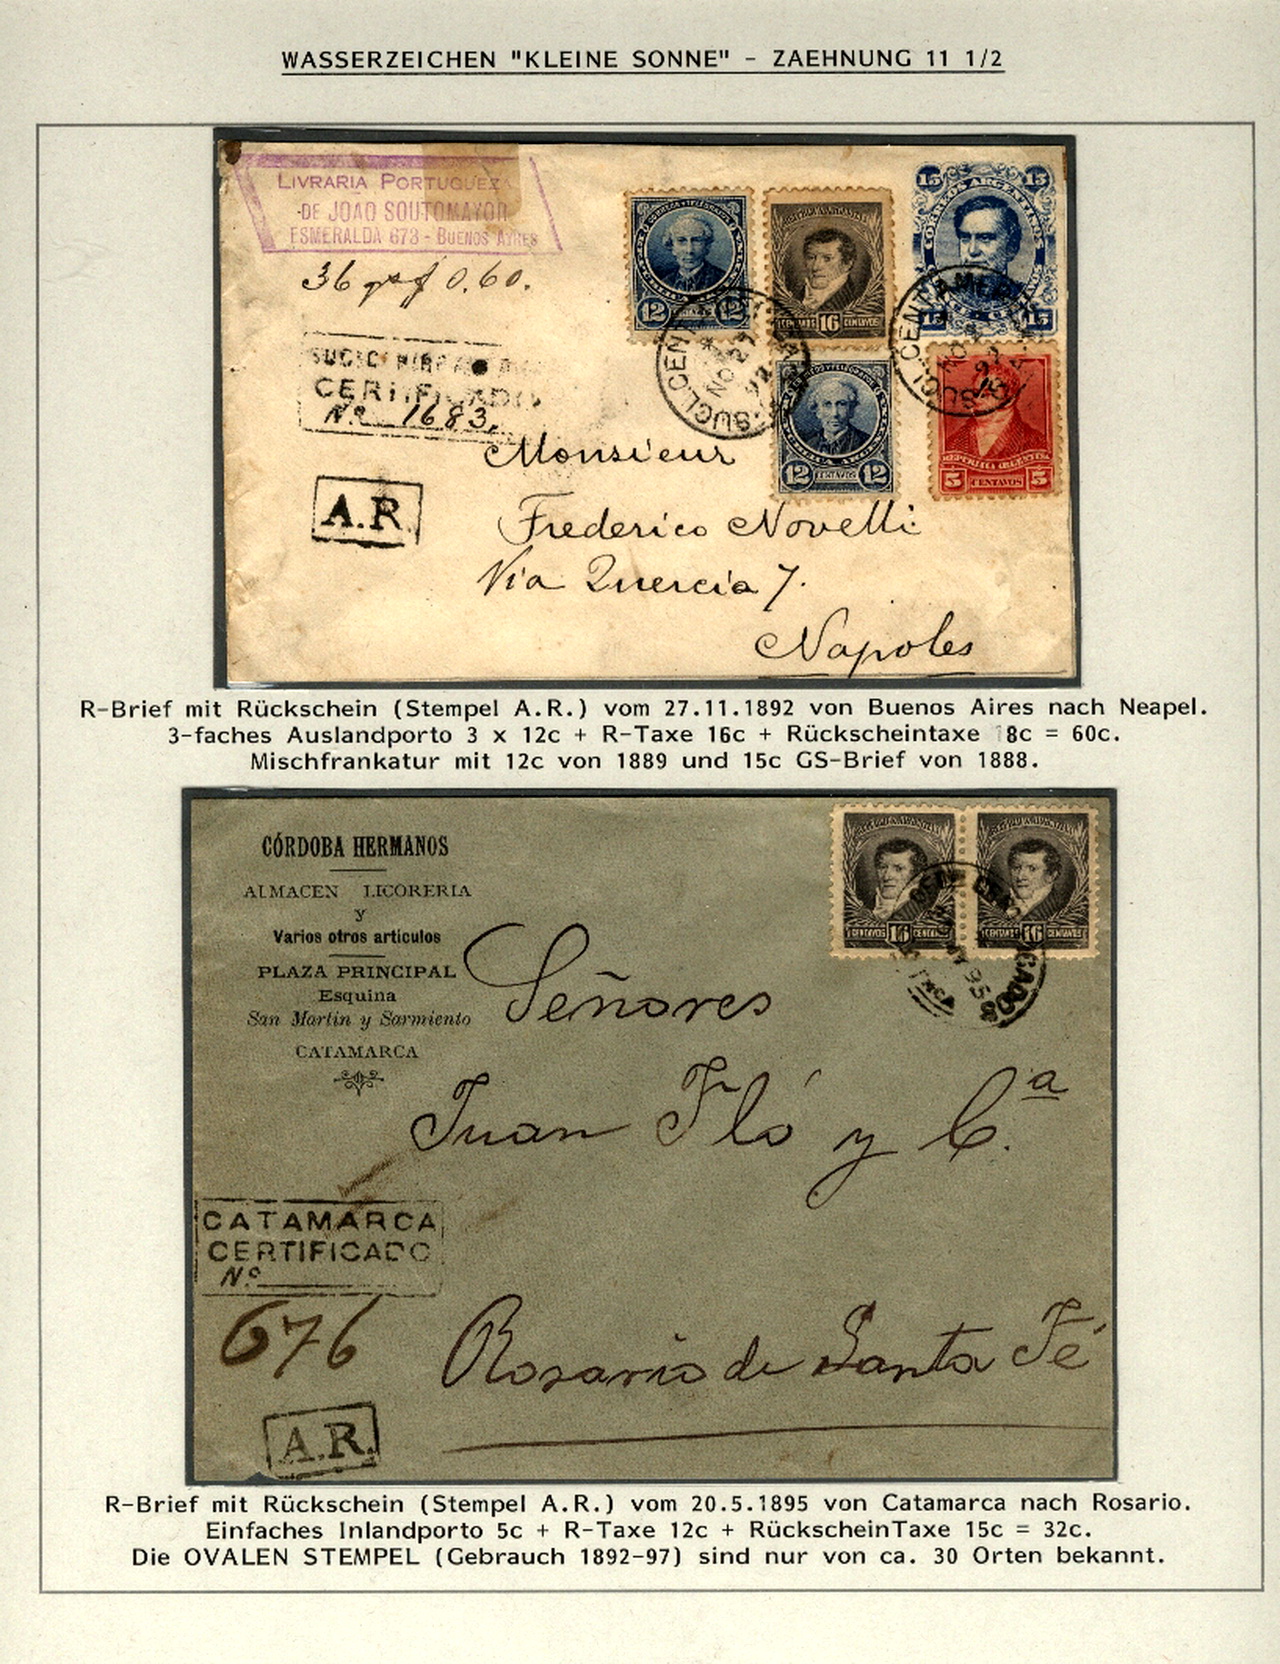 WASSERZEICHEN "KLEINE SONNE" - ZAEHNUNG 11 1/2
LIVRARIA PORTUGUEZA
-DE JOAO SOUTOMAYOR
ESMERALDA 673 - BUENOS AYRES
36 0.60.
CERTIFICADO
No. 1683,
A.R.
12 12
16 CENTAVOS
15 15
CORREOS ARGENTINOS
15 15
12 12
REPUBLICA ARGENTINA
5 CENTAVOS 5
NO 27 92
Monsieur
Frederico Novelli
Via Quercia 7.
Napoles
R-Brief mit Rückschein (Stempel A.R.) vom 27.11.1892 von Buenos Aires nach Neapel.
3-faches Auslandporto 3 x 12c + R-Taxe 16c + Rückscheintaxe 8c = 60c.
Mischfrankatur mit 12c von 1889 und 15c GS-Brief von 1888.
CÓRDOBA HERMANOS
ALMACEN LICORERIA
y
Varios otros articulos
PLAZA PRINCIPAL
Esquina
San Martin y Sarmiento
CATAMARCA
CENTAVOS 16 CENTAVOS
CENTAVOS 16 CENTAVOS
Señores
Juan Fló y Cª.
CATAMARCA
CERTIFICADO
No.
676
Rosario de Santa Fé
A.R.
R-Brief mit Rückschein (Stempel A.R.) vom 20.5.1895 von Catamarca nach Rosario.
Einfaches Inlandporto 5c + R-Taxe 12c + RückscheinTaxe 15c = 32c.
Die OVALEN STEMPEL (Gebrauch 1892-97) sind nur von ca. 30 Orten bekannt.